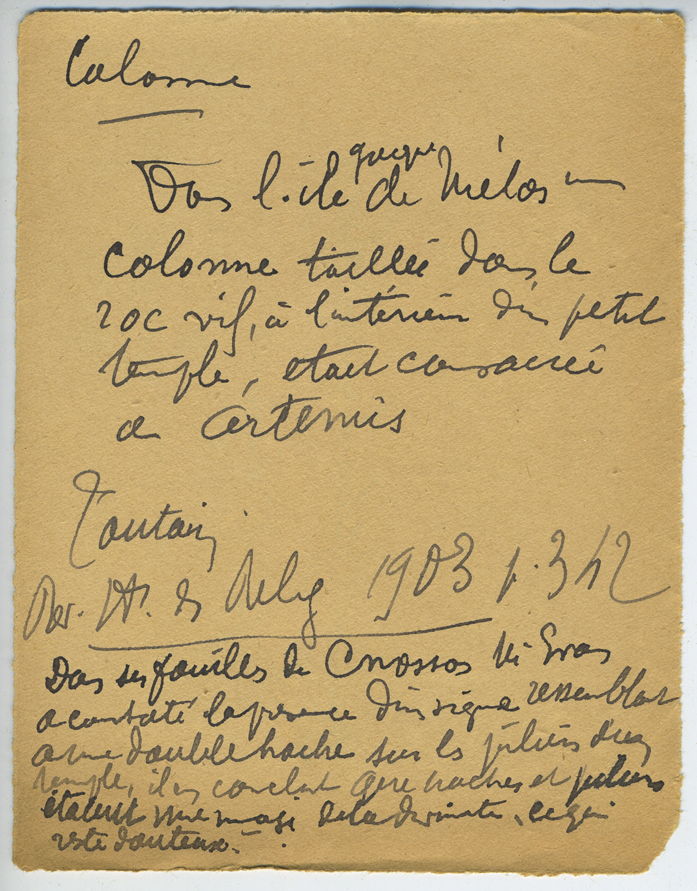 Colonne
Dans l'île grecque de Mélos une
colonne taillée dans le
roc vif, à l'intérieur d'un petit
temple, etait consacrée
a Artemis
Toutain
Rev. H. des Relig 1903 p. 342
Dans ses fouilles de Cnossos Mr Evans
a constaté la présence d'un signe ressemblant
a une double hache sur les piliers d'un
temple, il en conclut que haches et piliers
étaient une image de la divinité, ce qui
reste douteux.